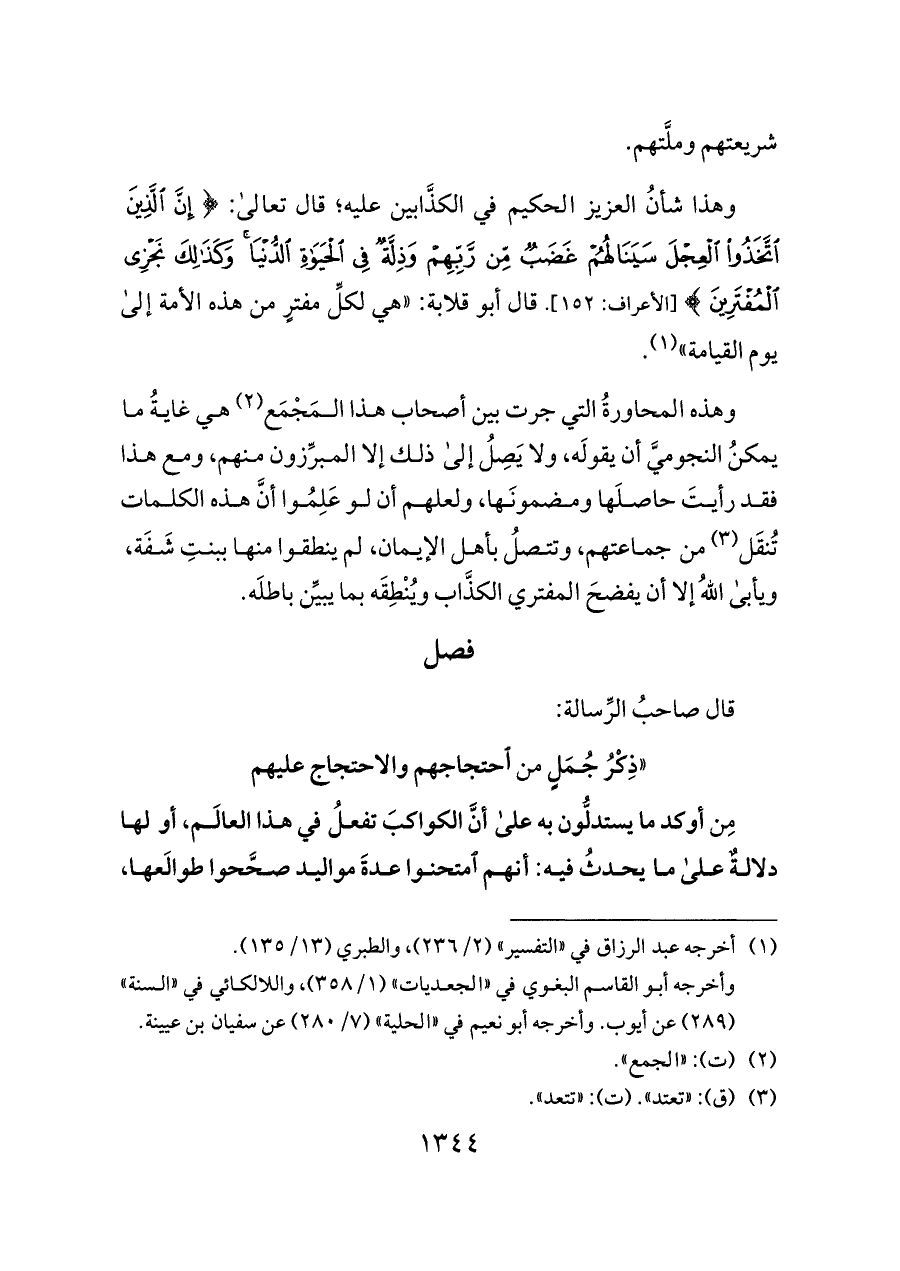 شريعتهم وملَّتهم.
وهذا شأنُ العزيز الحكيم في الكذَّابين عليه؛ قال تعالىٰ: ﴿ إِنَّ ٱلَّذِينَ
ٱتَّخَذُوا۟ ٱلْعِجْلَ سَيَنَالُهُمْ غَضَبٌ مِّن رَّبِّهِمْ وَذِلَّةٌ فِى ٱلْحَيَوٰةِ ٱلدُّنْيَا ۚ وَكَذَٰلِكَ نَجْزِى
ٱلْمُفْتَرِينَ ﴾ [الأعراف: ١٥٢]. قال أبو قلابة: «هي لكلِّ مفترٍ من هذه الأمة إلىٰ
يوم القيامة»(١).
وهذه المحاورةُ التي جرت بين أصحاب هذا المَجْمَع(٢) هي غايةُ ما
يمكنُ النجوميَّ أن يقولَه، ولا يَصِلُ إلىٰ ذلك إلا المبرِّزون منهم، ومع هذا
فقد رأيتَ حاصلَها ومضمونَها، ولعلهم أن لو عَلِمُوا أنَّ هذه الكلمات
تُنقَل(٣) من جماعتهم، وتتصلُ بأهل الإيمان، لم ينطقوا منها ببنتِ شَفَة،
ويأبىٰ اللهُ إلا أن يفضحَ المفتري الكذَّاب ويُنْطِقَه بما يبيِّن باطلَه.
فصل
قال صاحبُ الرِّسالة:
«ذِكْرُ جُمَلٍ من ٱحتجاجهم والاحتجاج عليهم
مِن أوكد ما يستدلُّون به علىٰ أنَّ الكواكبَ تفعلُ في هذا العالَم، أو لها
دلالةٌ علىٰ ما يحدثُ فيه: أنهم ٱمتحنوا عدةَ مواليد صحَّحوا طوالَعها،
(١) أخرجه عبد الرزاق في «التفسير» (٢/ ٢٣٦)، والطبري (١٣/ ١٣٥).
وأخرجه أبو القاسم البغوي في «الجعديات» (١/ ٣٥٨)، واللالكائي في «السنة»
(٢٨٩) عن أيوب. وأخرجه أبو نعيم في «الحلية» (٧/ ٢٨٠) عن سفيان بن عيينة.
(٢) (ت): «الجمع».
(٣) (ق): «تعتد». (ت): «تتعد».
١٣٤٤